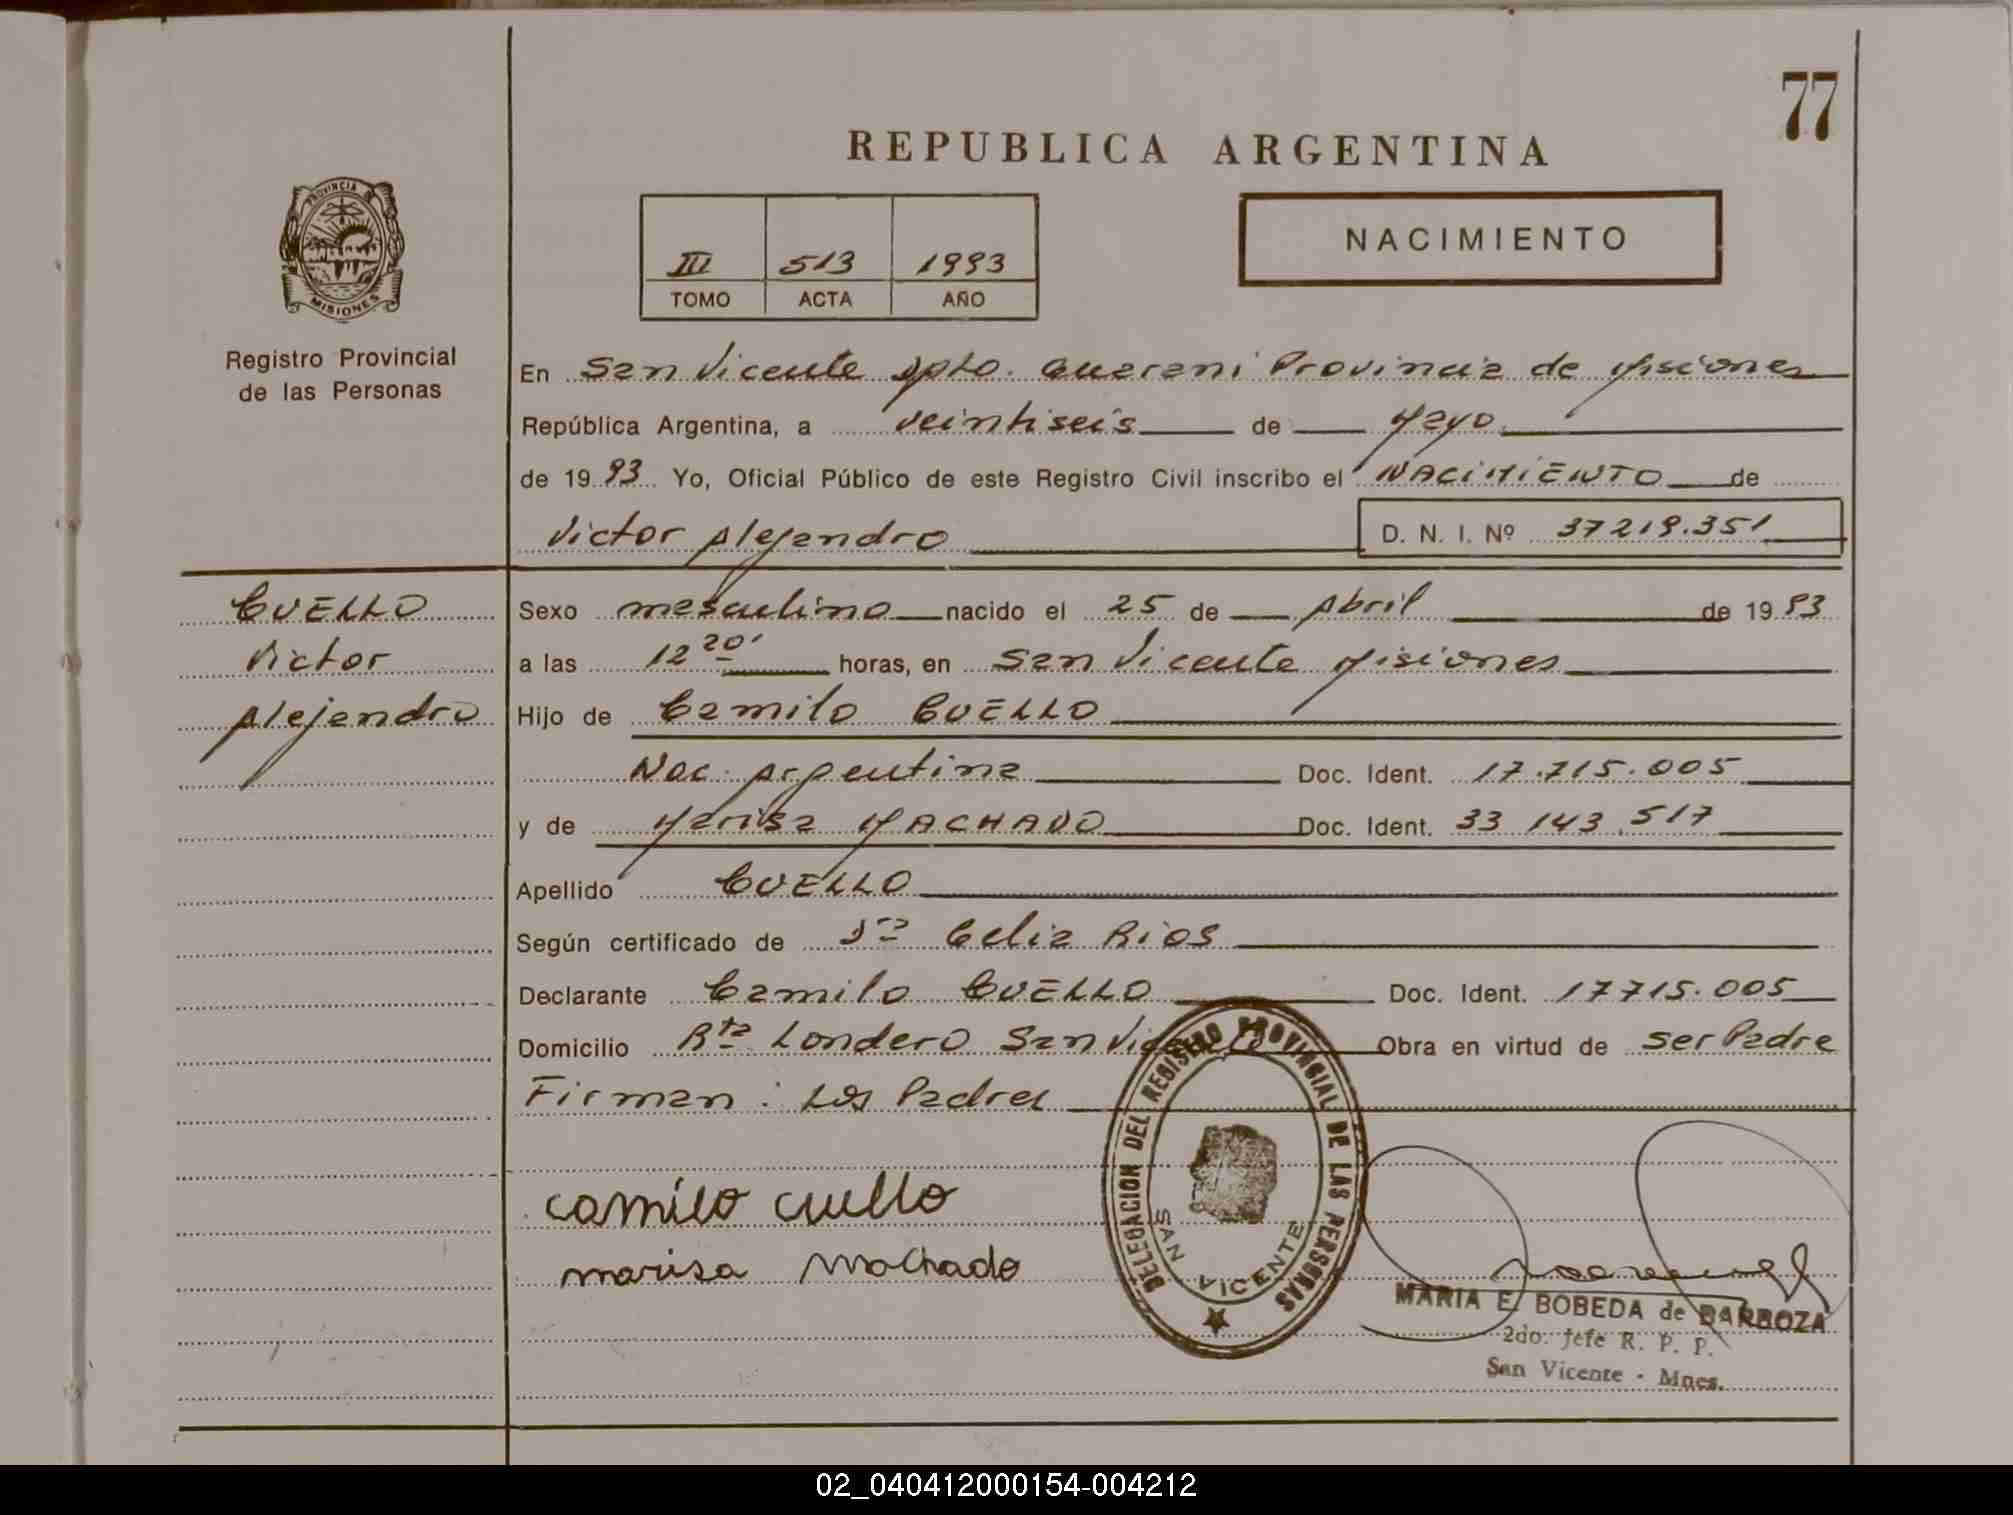 77
REPUBLICA ARGENTINA
PROVINCIA DE
MISIONES
Registro Provincial
de las Personas
III 513 1993
TOMO ACTA AÑO
NACIMIENTO
En San Vicente Dpto. Guarani Provincia de Misiones
República Argentina, a veintiseis de Mayo
de 19 93 Yo, Oficial Público de este Registro Civil inscribo el NACIMIENTO de
Victor Alejandro D. N. I. Nº 37219.351
CUELLO
Victor
Alejandro
Sexo masculino nacido el 25 de Abril de 19 93
a las 12 20' horas, en San Vicente Misiones
Hijo de Camilo CUELLO
Nac. Argentina Doc. Ident. 17.715.005
y de Marisa MACHADO Doc. Ident. 33 143.517
Apellido CUELLO
Según certificado de Dra Celia Rios
Declarante Camilo CUELLO Doc. Ident. 17715.005
Domicilio Rta Londero San Vicente Obra en virtud de ser Padre
Firman: Los Padres
camilo cuello
marisa machado
DELEGACION DEL REGISTRO PROVINCIAL DE LAS PERSONAS
SAN VICENTE
MARIA E. BOBEDA de BARBOZA
2do. Jefe R. P. P.
San Vicente - Mnes.
02_040412000154-004212